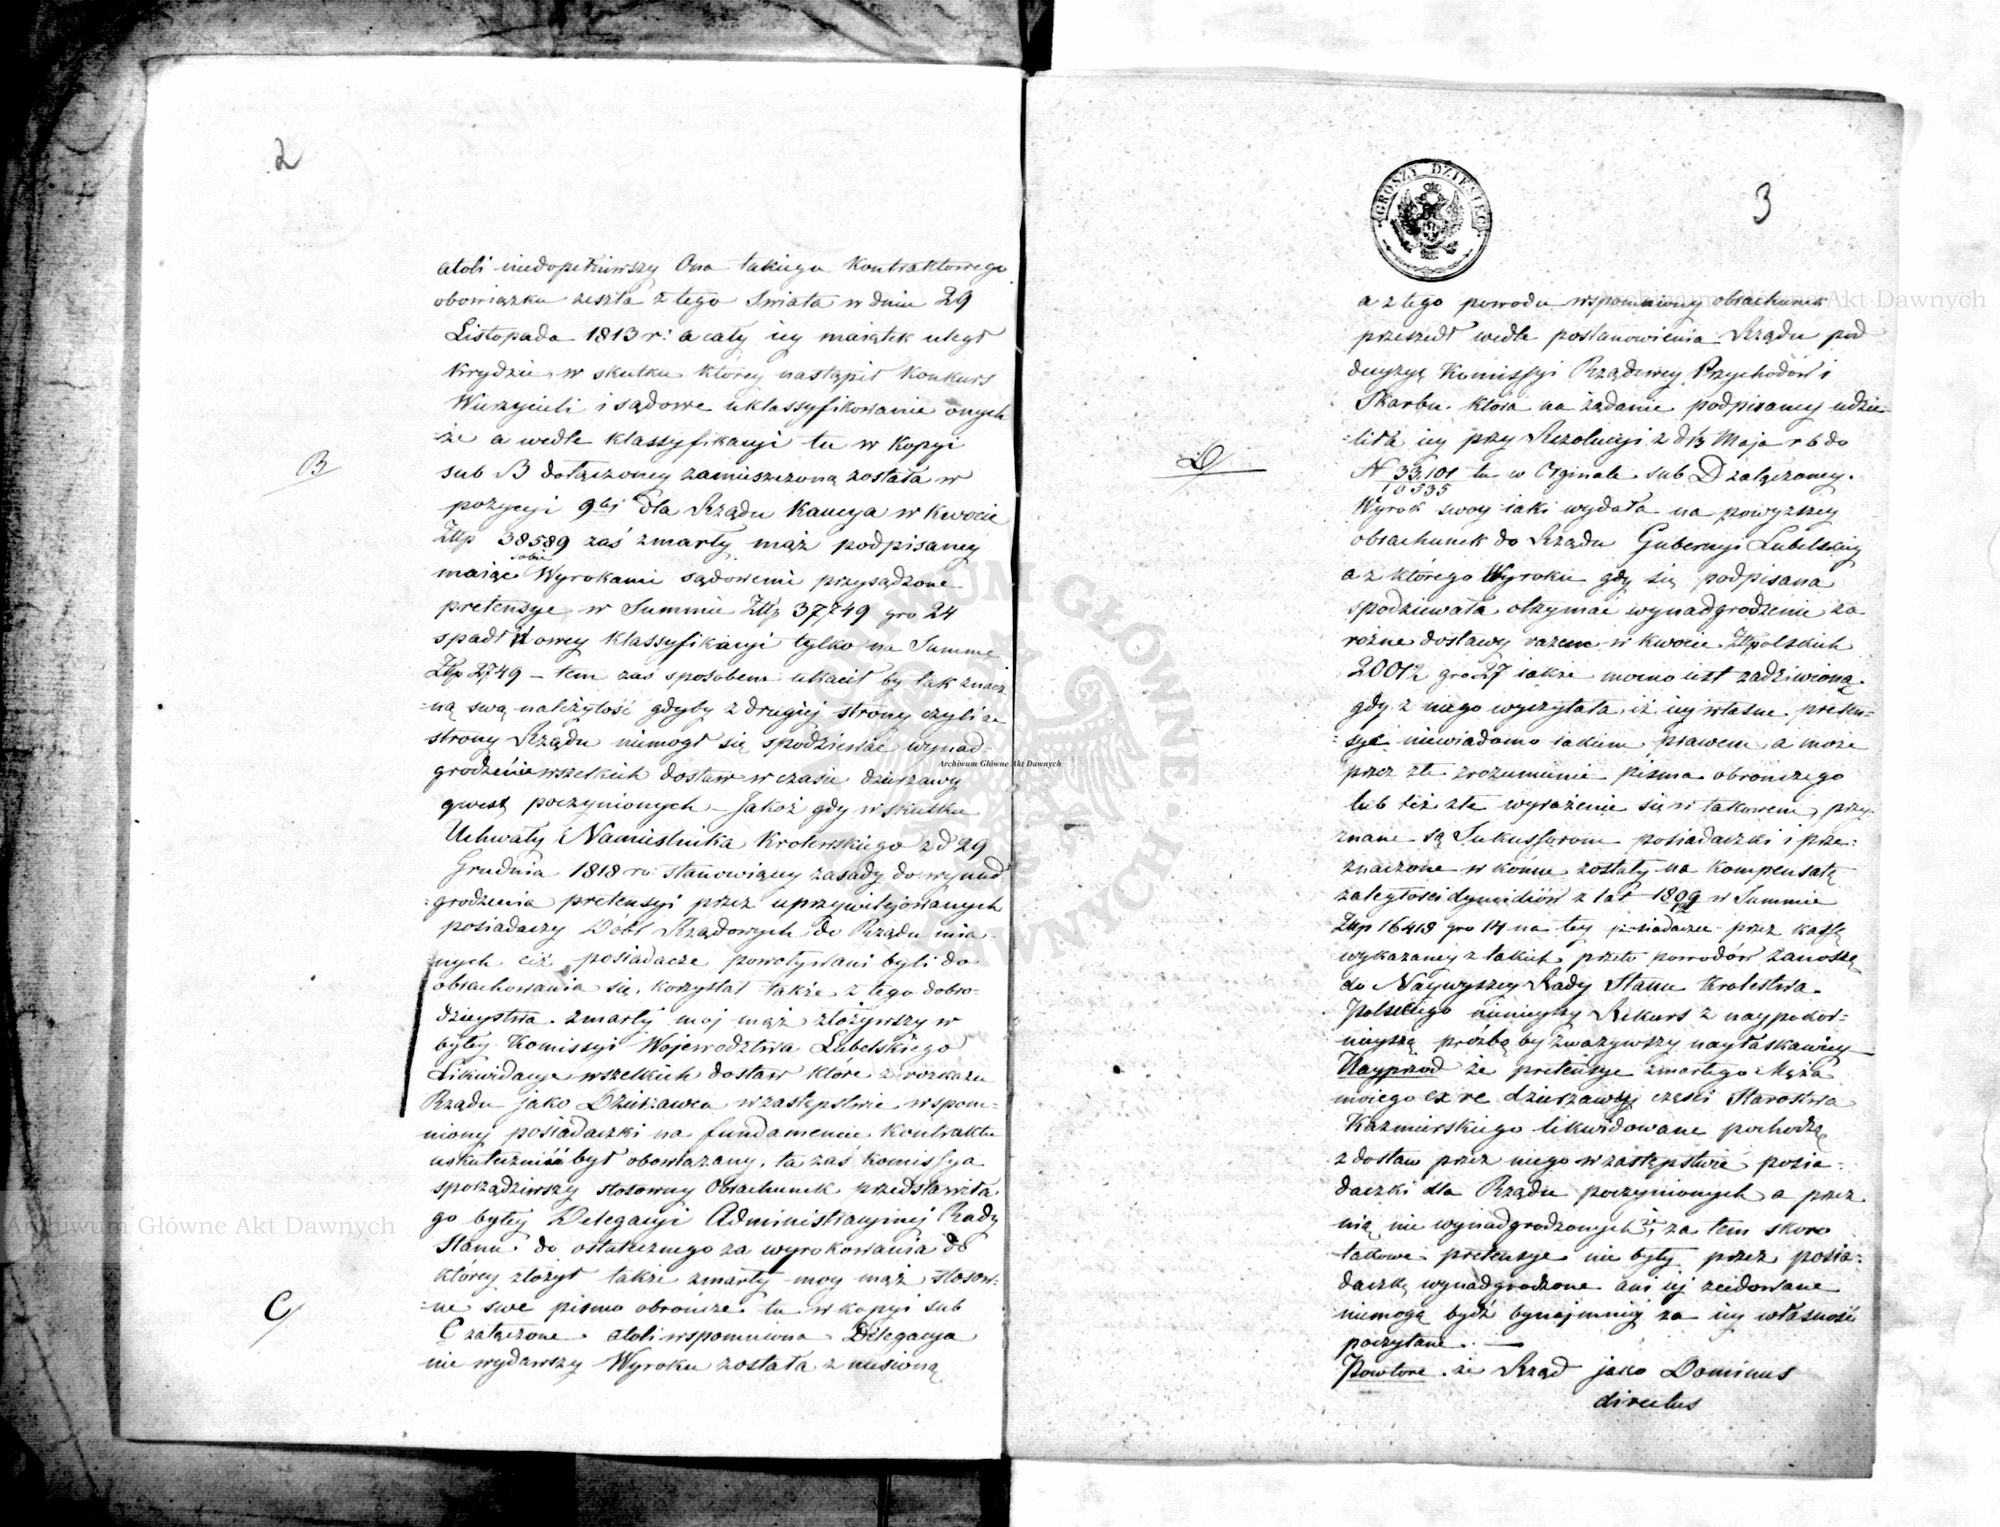 2
atoli niedopełniwszy Ona takiego Kontraktowego
obowiązku zeszła z tego Swiata w dniu 29
Listopada 1813 r: a cały iey maiątek uległ
krydzie, w skutku którey nastąpił Konkurs
Wierzycieli i sądowe uklassyfikowanie onych
-że a wedle klassyfikacyi tu w Kopyi
B
sub B dołączoney zamieszczoną została w
pozycyi 9tej dla Rządu Kaucya w kwocie
Złp 38589 zaś zmarły mąż podpisaney
maiąc sobie Wyrokami sądowemi przysądzone
pretensye w Summie Złp 37,749 gro 24
spadł w owey klassyfikacyi tylko na Summę
Złp 2749 – tem zaś sposobem utracił by tak znacz
-ną swą należytość gdyby z drugiej strony czyli ze
strony Rządu niemogł się spodziewać wynad-
grodzenie wszelkich dostaw w czasie dzierzawy
poczynionych – Jakoż gdy w skutku
Uchwały Namiestnika Krolewskiego z d 29
Grudnia 1818 ro: stanowiący zasady do wynad
-grodzenia pretensyi przez uprzywilejowanych
posiadaczy Dóbr Rządowych do Rządu mia-
nych ciż posiadacze powoływani byli do
obrachowania się, korzystał także z tego dobro-
dzieystwa zmarły moj mąż złożywszy w
byłey Komissyi Wojewodztwa Lubelskiego
Likwidacye wszelkich dostaw ktore z rozkazu
Rządu jako Dzierzawca w zastępstwie wspom-
niony posiadaczki na fundamencie Kontraktu
uskutecznić był obowiązany, ta zaś Komissya
sporządziwszy stosowny Obrachunek przedstawiła
go byłey Delegacyi Administracyinej Rady
Stanu do ostatecznego za wyrokowania do
którey złożył także zmarły moy mąż stosow-
C
-ne swe pismo obrończe tu w kopyi sub
C załączone. atoli wspomniona Delegacya
nie wydawszy Wyroku została zniesioną
GROSZY DZIESIĘĆ
3
a z tego powodu wspomniony obrachunek
przeszedł wedle postanowienia Rządu pod
decyzyę Komissyi Rządowey Przychodów i
Skarbu. która na żądanie podpisaney udzie-
-liła iey przy Rezolucyi z d 13 Maja r b do
D
N 33,101 / 10535 tu w Orginale sub D załączoney.
Wyrok swoy iaki wydała na powyższy
obrachunek do Rządu Gubernyi Lubelskiey
a z którego Wyroku gdy się podpisana
spodziewała otrzymać wynadgrodzenie za
rożne dostawy razem w kwocie Złpolskich
gro 27 iakże mocno iest zadziwioną.
gdy z niego wyczytała, iż iey własne preten-
-sye niewiadomo iakiem prawem a może
przez złe zrozumienie pisma obronczego
lub też złe wyrażenie się w takowem przy-
znane są Sukcessorom posiadaczki i prze-
znaczone w końcu zostały na kompensatę
zaległości dymidiów z lat w Summie
Złp 16418 gro 14 na tey posiadaczce przez kassę
wykazaney z takich przeto powodów zanoszę
do Naywyszey Rady Stanu Krolestwa
Polskiego ninieyszy Rekurs z naypokor-
nieyszą prośbą by zważywszy nayłaskawiey
Nayprzod że pretensye zmarłego Męża
moiego ex re dzierzawy części Starostwa
Kazmierskiego likwidowane pochodzą
z dostaw przez niego w zastępstwie posia-
daczki dla Rządu poczynionych a przez
nią nie wynadgrodzonych, za tem skoro
takowe pretensye nie były przez posia-
daczkę wynadgrodzone ani iej zcedowane
niemogą bydź bynajmniey za iey własność
poczytane. —
Powtore. że Rząd jako Dominus
directus
Archiwum Główne Akt Dawnych
Archiwum Główne Akt Dawnych
Archiwum Główne Akt Dawnych
ARCHIWUM GŁÓWNE AKT DAWNYCH